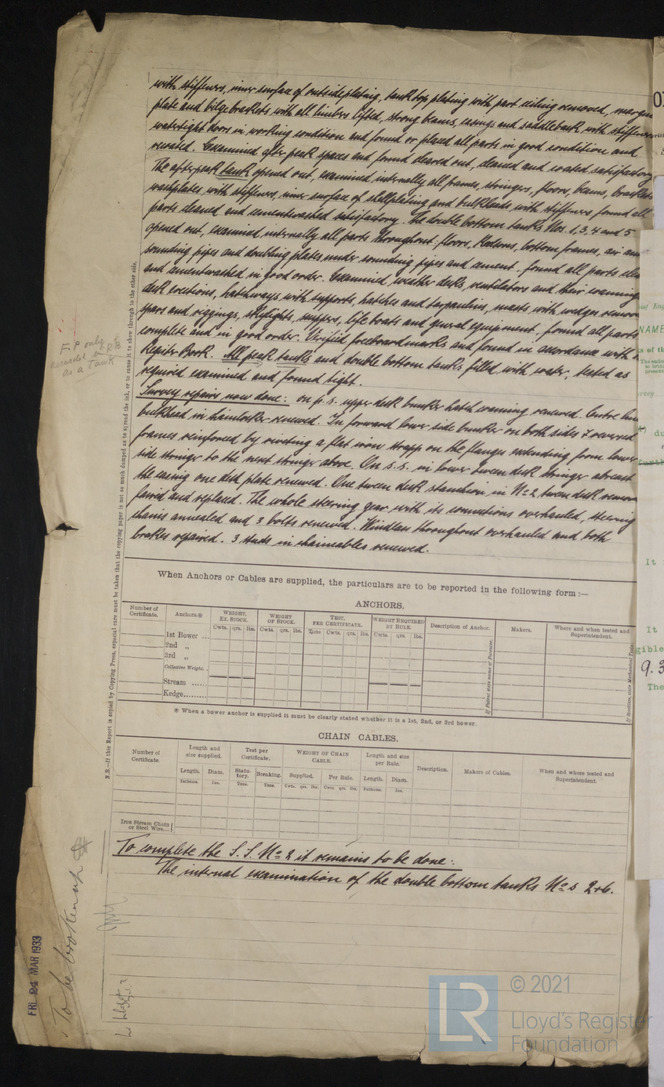 with stiffeners, inner surface of outside plating, tank top plating with part ceiling removed, margin
plate and bilge brackets with all limbers lifted, strong beams, casings and saddleback with stiffeners
watertight doors in working condition and found or placed all parts in good condition and
recoated. Examined after peak spaces and found cleared out, cleaned and coated satisfactory.
The after peak tank opened out, examined internally all frames, stringers, floors, beams, brackets
washplates with stiffeners, inner surface of shellplating and bulkheads with stiffeners found all
parts cleaned and cementwashed satisfactory. The double bottom tanks Nos. 1, 3, 4 and 5
opened out, examined internally all parts throughout floors, bottom frames, air and
sounding pipes and doubling plates under sounding pipes and cement, found all parts clean
and cementwashed in good order. Examined, weather decks, ventilators and their coamings
deck erections, hatchways with supports, hatches and tarpaulins, masts with wedges removed
spars and riggings, skylights, scuppers, life boats and general equipment, found all parts
complete and in good order. Verified freeboard marks and found in accordance with
Register Book. All peak tanks and double bottom tanks filled with water, tested as
required examined and found tight.
Survey repairs now done: on p.s. upper deck bunker hatch coaming renewed. Centre line
bulkhead in chainlocker renewed. In forward lower side bunker on both sides 7
frames reinforced by riveting a flat iron strapp on the flange extending from lower
side stringer to the next stringer above. On s.s. in lower tween deck stringer abreast
the casing one deck plate renewed. One tween deck stanchion in No 2 tween deck removed
faired and replaced. The whole steering gear with its connections overhauled, steering
chains annealed and 3 bolts renewed. Windlass throughout overhauled and both
brakes repaired. 3 studs in chaincables renewed.
F.P only
as a tank
N.B.—If this Report is copied by Copying Press, especial care must be taken that the copying paper is not so much damped as to spread the ink, or to cause it to show through to the other side.
When Anchors or Cables are supplied, the particulars are to be reported in the following form :—
ANCHORS.
Number of Certificate. Anchors※ WEIGHT, EX. STOCK. WEIGHT OF STOCK. TEST, PER CERTIFICATE. WEIGHT REQUIRED BY RULE. Description of Anchor. Makers. Where and when tested and Superintendent.
Cwts. qrs. lbs. Cwts. qrs. lbs. Tons Cwts. qrs. lbs. Cwts. qrs. lbs.
1st Bower ...
2nd „
3rd „
Collective Weight.
Stream ......
Kedge.........
※ When a bower anchor is supplied it must be clearly stated whether it is a 1st, 2nd, or 3rd bower.
CHAIN CABLES.
Number of Certificate. Length and size supplied. Test per Certificate. WEIGHT OF CHAIN CABLE. Length and size per Rule. Description. Makers of Cables. When and where tested and Superintendent.
Length. Diam. Statutory. Breaking. Supplied. Per Rule. Length. Diam.
Fathoms. Ins. Tons. Tons. Cwts. qrs. lbs. Cwts. qrs. lbs. Fathoms. Ins.
Iron Stream Chain or Steel Wire...
To complete the S.S. No 2 it remains to be done:
The internal examination of the double bottom tanks Nos 2 & 6.
To be broken up
FRI. 24 MAR 1933
NAME
It
It
gible
9.3
The
LR
© 2021
Lloyd's Register
Foundation